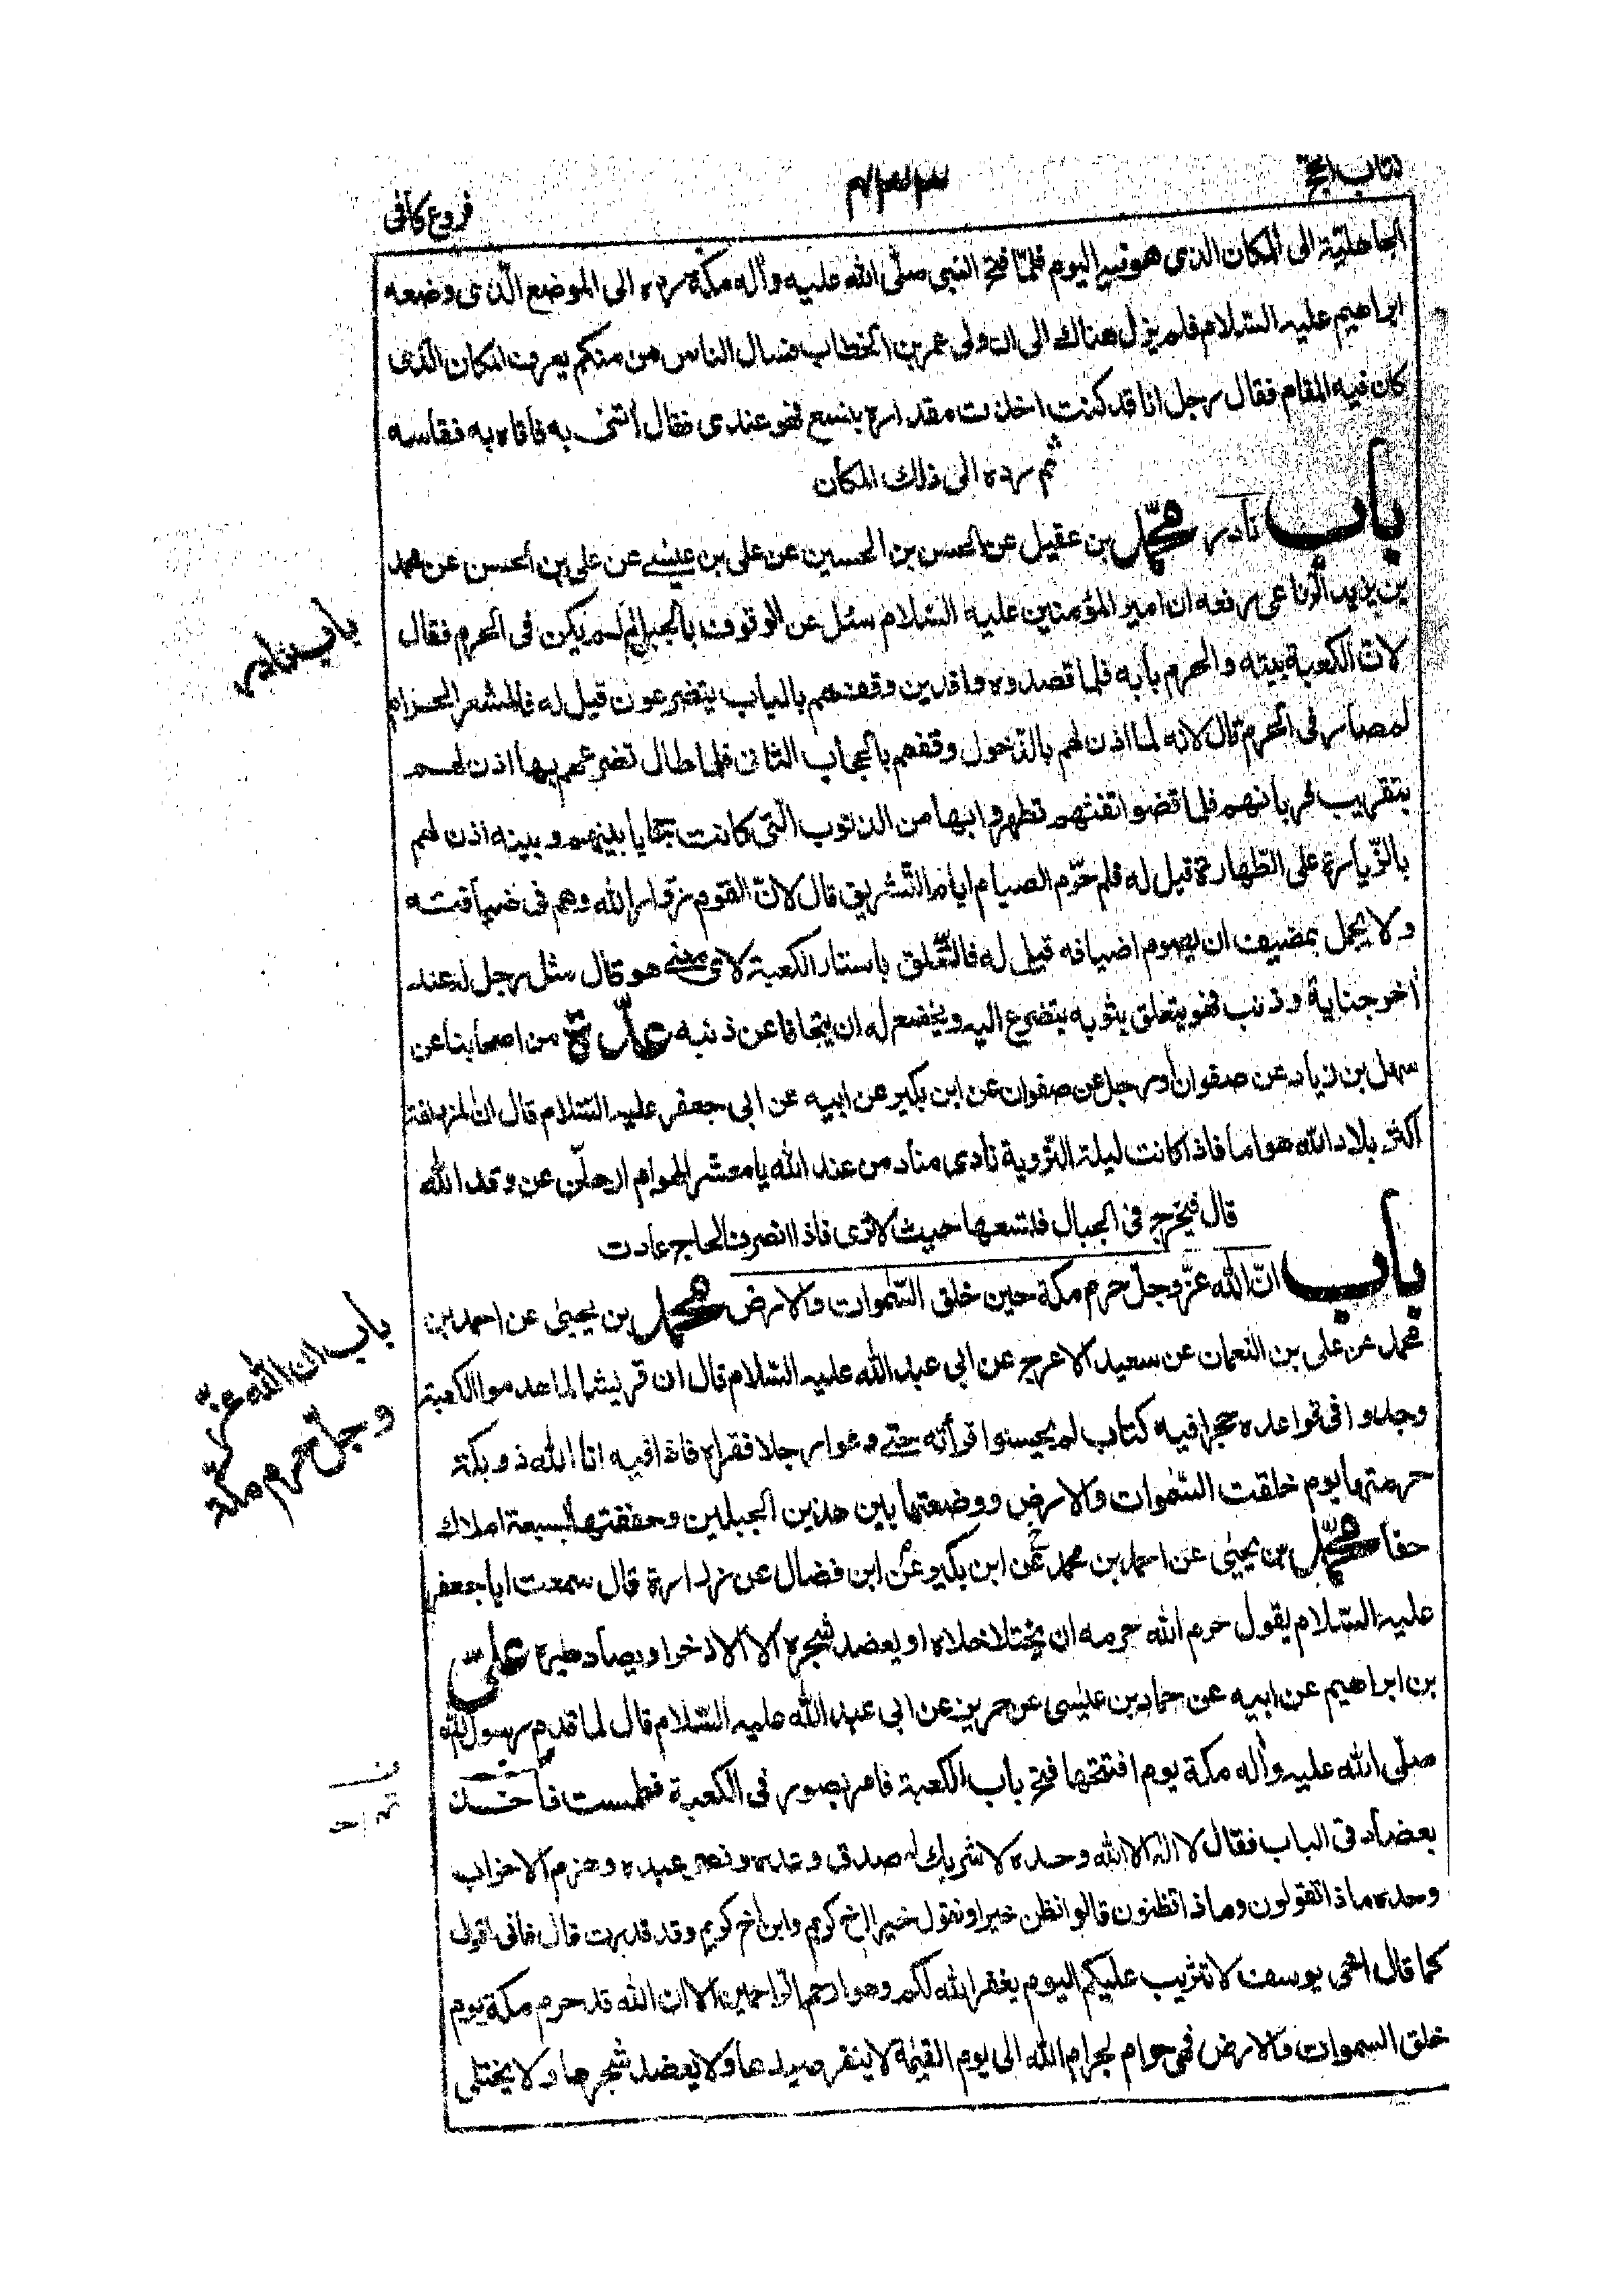 كتاب الحج
فروع كافى
الجاهلية الى المكان الذى هو فيه اليوم فلمّا فتح النبى صلّى الله عليه وآله مكة رده الى الموضع الّذى وضعه
ابراهيم عليه السّلام فلم يزل هناك الى ان ولى عمر بن الخطاب فسال الناس من منكم يعرف المكان الّذى
كان فيه المقام فقال رجل انا قد كنت اخذت مقداره بنسع فهو عندى فقال ائتنى به فاتاه به فقاسه
ثم رده الى ذلك المكان
باب نادر محمّد بن عقيل عن الحسن بن الحسين عن على بن عيسى عن على بن الحسن عن محمد
بن يزيد الرّفاعى رفعه ان امير المؤمنين عليه السّلام سئل عن الوقوف بالجبل لم لم يكن فى الحرم فقال
لانّ الكعبة بيته والحرم بابه فلما قصدوه وافدين وقفهم بالباب يتضرعون قيل له فالمشعر الحرام
لم صار فى الحرم قال لانه لما اذن لهم بالدّخول وقفهم بالحجاب الثانى فلما طال تضرعهم بها اذن لهم
بتقريب قربانهم فلما قضوا تفثهم تطهروا بها من الذنوب الّتى كانت حجابا بينهم وبينه اذن لهم
بالزّيارة على الطّهارة قيل له فلم حرّم الصيام ايام التّشريق قال لانّ القوم زوّار الله وهم فى ضيافته
ولا يجمل بمضيف ان يصوم اضيافه قيل له فالتّعلق باستار الكعبة لاى معنى هو قال مثل رجل له عند
اخر جناية وذنب فهو يتعلق بثوبه يتضرع اليه ويخضع له ان يتجافا عن ذنبه عدّة من اصحابنا عن
سهل بن زياد عن صفوان او رجل عن صفوان عن ابن بكير عن ابيه عن ابى جعفر عليه السّلام قال ان المزدلفة
اكثر بلاد الله هواما فاذا كانت ليلة التّروية نادى مناد من عند الله يا معشر الهوام ارحلن عن وفد الله
قال فتخرج فى الجبال فتسعها حيث لا ترى فاذا انصرف الحاج عادت
باب انّ الله عزّ وجلّ حرم مكة حين خلق السّموات والارض محمّد بن يحيى عن احمد بن
محمد عن على بن النعمان عن سعيد الاعرج عن ابى عبد الله عليه السّلام قال ان قريشا لما هدموا الكعبة
وجدوا فى قواعده حجرا فيه كتاب لم يحسنوا قرأته حتى دعوا رجلا فقراه فاذا فيه انا الله ذو بكة
حرمتها يوم خلقت السّموات والارض ووضعتها بين هذين الجبلين وحففتها بسبعة املاك
حفا محمّد بن يحيى عن احمد بن محمد عن ابن بكير وعن ابن فضال عن زرارة قال سمعت ابا جعفر
عليه السّلام يقول حرم الله حرمه ان يختلا خلاه او يعضد شجره الا الاذخر او يصاد طيره علىّ
بن ابراهيم عن ابيه عن حماد بن عيسى عن حريز عن ابى عبد الله عليه السّلام قال لما قدم رسول الله
صلّى الله عليه وآله مكة يوم افتتحها فتح باب الكعبة فامر بصور فى الكعبة فطمست فأخذ
بعضادتى الباب فقال لا اله الا الله وحده لا شريك له صدق وعده ونصر عبده وهزم الاحزاب
وحده ماذا تقولون وماذا تظنون قالوا نظن خيرا ونقول خيرا اخ كريم وابن اخ كريم وقد قدرت قال فانى اقول
كما قال اخى يوسف لا تثريب عليكم اليوم يغفر الله لكم وهو ارحم الرّاحمين الا ان الله قد حرم مكة يوم
خلق السموات والارض فهى حرام بحرام الله الى يوم القيمة لا ينفر صيدها ولا يعضد شجرها ولا يختلى
باب نادر
باب ان الله عزّ
وجلّ حرم مكة